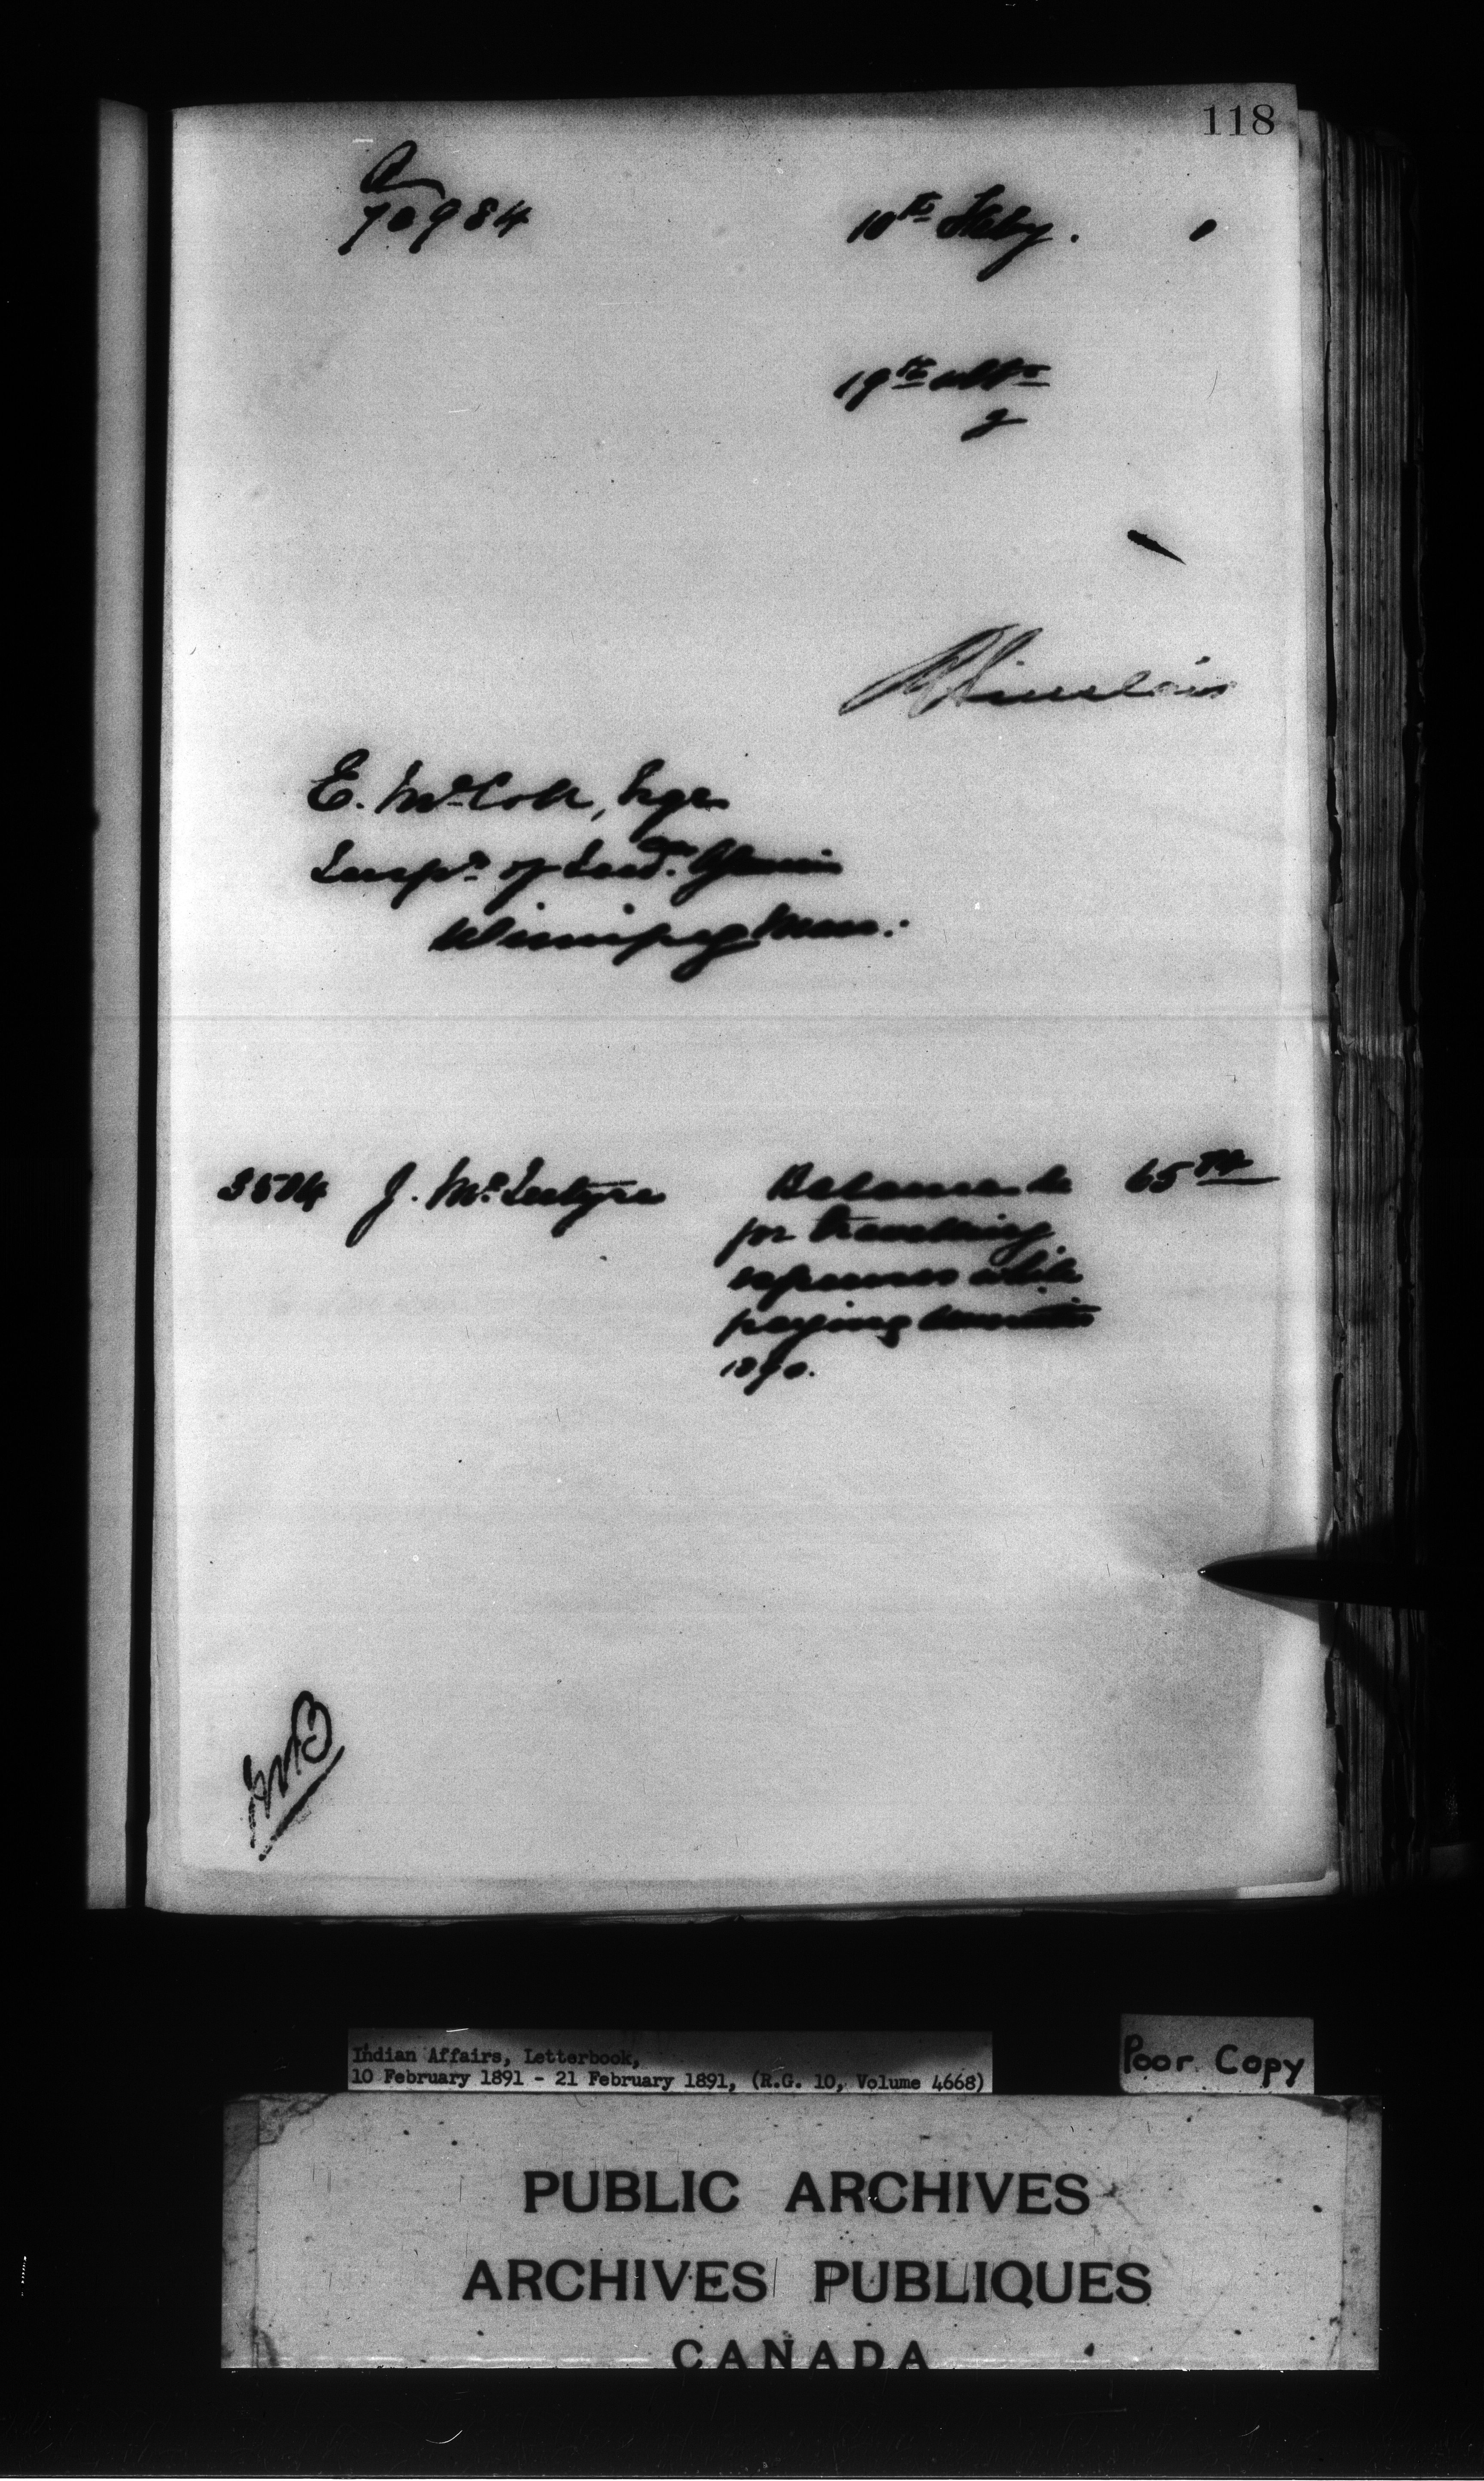 118
70984
10th Feby.
19th ulto
E. McColl, Esqre
Inspr. of Ind. Agencies
Winnipeg Man.
3504 J. McIntyre Balance de 65
for travelling
expenses while
paying annuities
1890.
Indian Affairs, Letterbook,
10 February 1891 - 21 February 1891, (R.G. 10, Volume 4668)
Poor Copy
PUBLIC ARCHIVES
ARCHIVES PUBLIQUES
CANADA